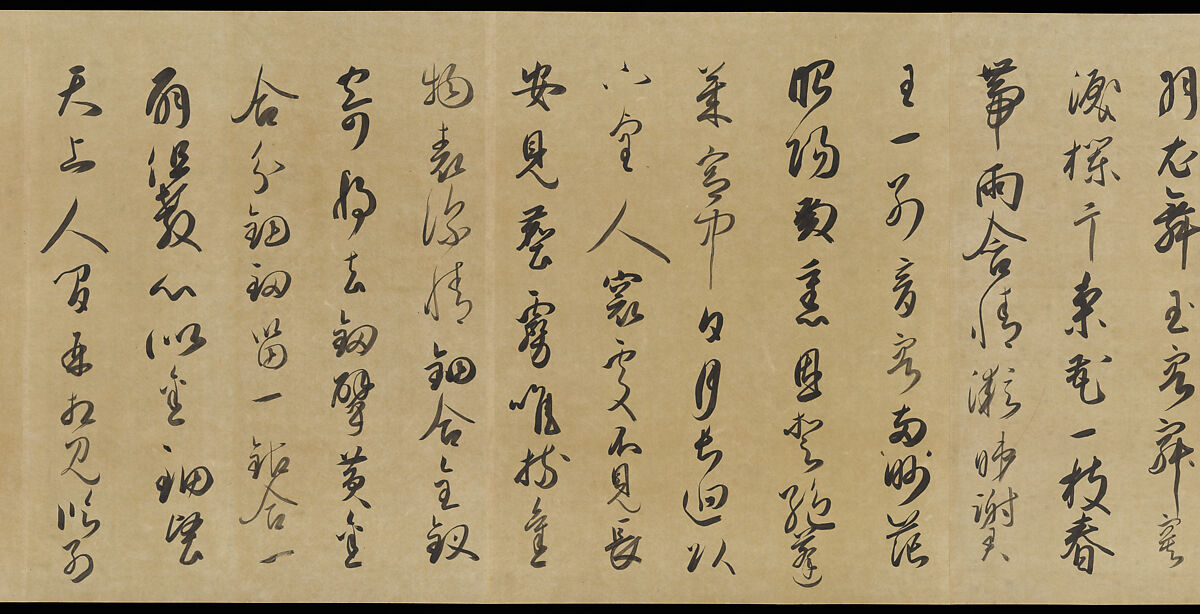 羽衣舞玉容寂寞
淚欄干梨花一枝春
帶雨含情凝睇謝君
王一別音容兩渺茫
昭陽殿裏恩愛絕蓬
萊宮中日月長迴頭
下望人寰處不見長
安見塵霧唯將舊
物表深情鈿合金釵
寄將去釵擘黃金
合分鈿釵留一股合一
扇但教心似金鈿堅
天上人間再相見臨別